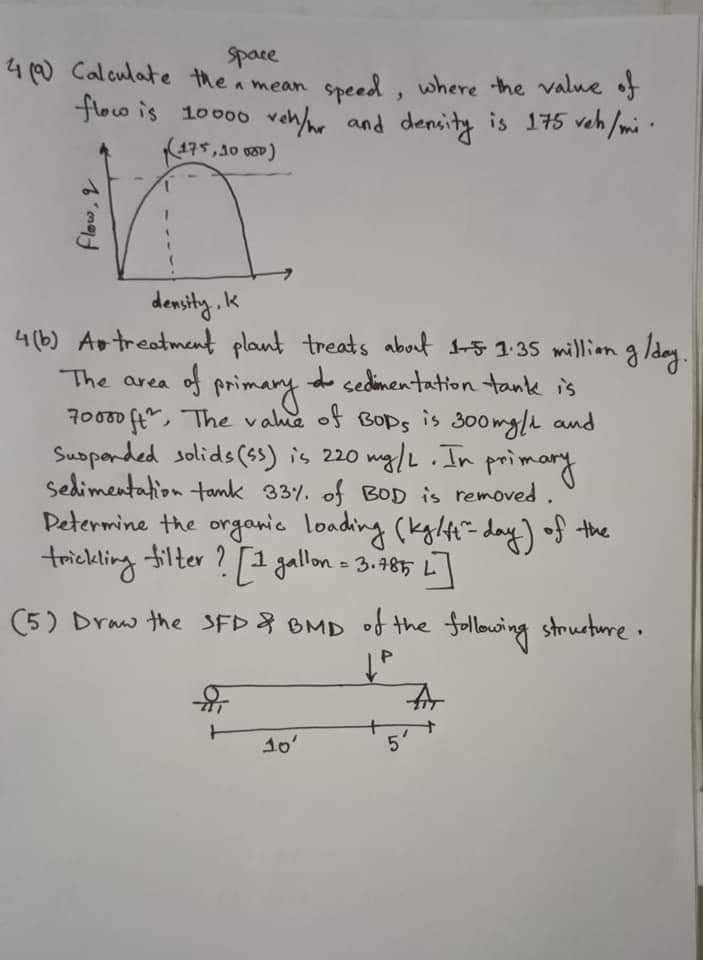 space
4(a) Calculate the ʌ mean speed, where the value of
flow is 10000 veh/hr and density is 175 veh/mi.
(175, 10000)
flow, q
density, k
4(b) A treatment plant treats about 1.5 1.35 million g/day.
The area of primary sedimentation tank is
70000 ft², The value of BOD5 is 300mg/L and
Suspended solids(SS) is 220 mg/L. In primary
Sedimentation tank 33% of BOD is removed.
Determine the organic loading (kg/ft²-day) of the
trickling filter? [1 gallon = 3.785 L]
(5) Draw the SFD & BMD of the following structure.
P
10' 5'